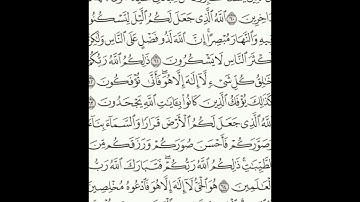 دَاخِرِينَ ۝٦٠ ٱللَّهُ ٱلَّذِى جَعَلَ لَكُمُ ٱلَّيْلَ لِتَسْكُنُوا۟
فِيهِ وَٱلنَّهَارَ مُبْصِرًا ۚ إِنَّ ٱللَّهَ لَذُو فَضْلٍ عَلَى ٱلنَّاسِ وَلَٰكِنَّ
أَكْثَرَ ٱلنَّاسِ لَا يَشْكُرُونَ ۝٦١ ذَٰلِكُمُ ٱللَّهُ رَبُّكُمْ
خَٰلِقُ كُلِّ شَىْءٍ لَّآ إِلَٰهَ إِلَّا هُوَ ۖ فَأَنَّىٰ تُؤْفَكُونَ ۝٦٢
كَذَٰلِكَ يُؤْفَكُ ٱلَّذِينَ كَانُوا۟ بِـَٔايَٰتِ ٱللَّهِ يَجْحَدُونَ ۝٦٣
ٱللَّهُ ٱلَّذِى جَعَلَ لَكُمُ ٱلْأَرْضَ قَرَارًا وَٱلسَّمَآءَ بِنَآءً
وَصَوَّرَكُمْ فَأَحْسَنَ صُوَرَكُمْ وَرَزَقَكُم مِّنَ
ٱلطَّيِّبَٰتِ ۚ ذَٰلِكُمُ ٱللَّهُ رَبُّكُمْ ۖ فَتَبَارَكَ ٱللَّهُ رَبُّ
ٱلْعَٰلَمِينَ ۝٦٤ هُوَ ٱلْحَىُّ لَآ إِلَٰهَ إِلَّا هُوَ فَٱدْعُوهُ مُخْلِصِينَ